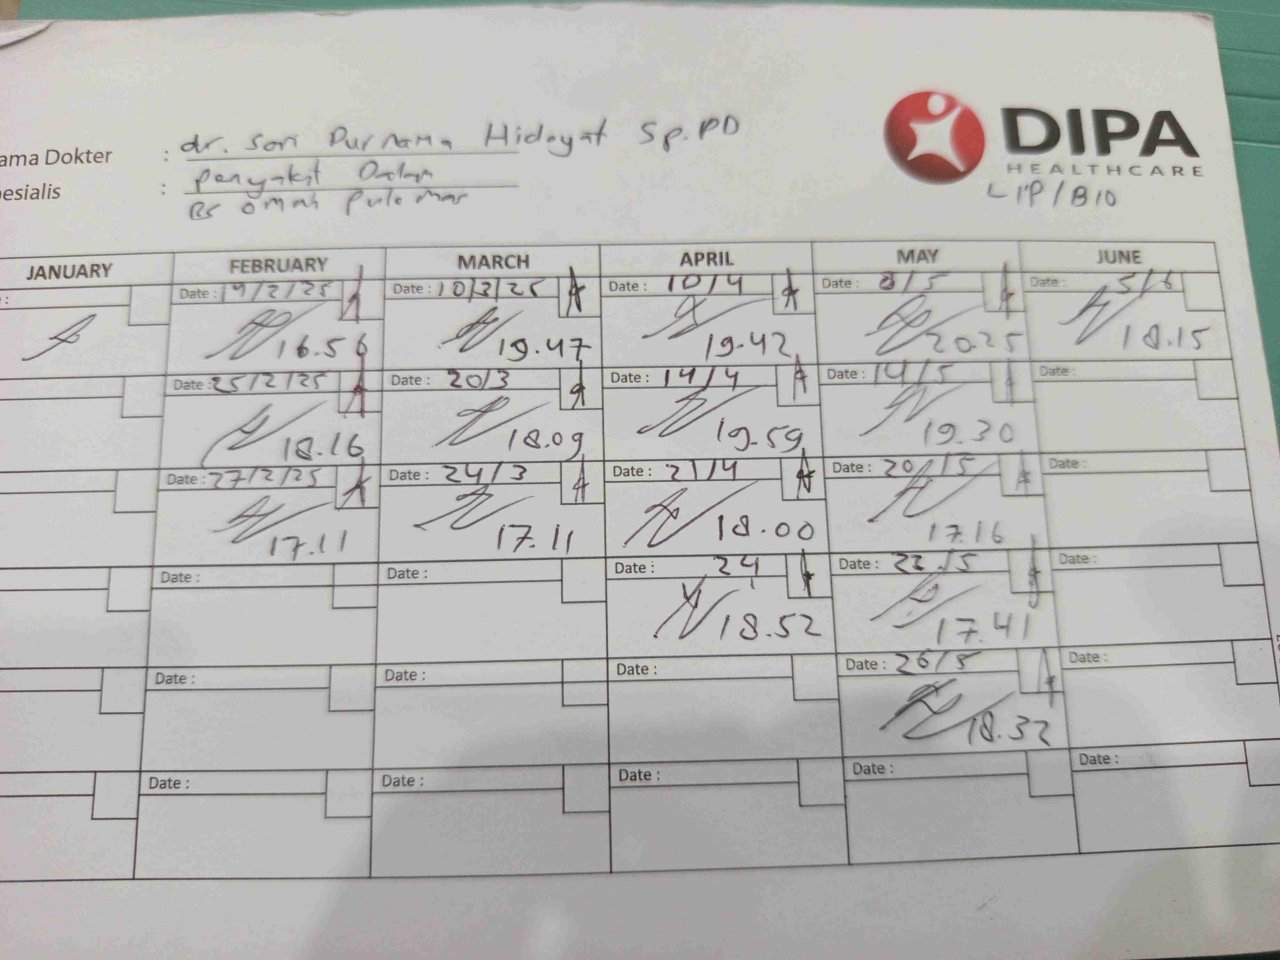 DIPA
HEALTHCARE
LIP/B10
ama Dokter : dr. Sori Purnama Hidayat Sp.PD
esialis : Penyakit Dalam
RS omah
JANUARY FEBRUARY MARCH APRIL MAY JUNE
: Date : 19/2/25 Date : 10/3/25 Date : 10/4 Date : 8/5 Date : 5/6
16.56 19.47 19.42 20.25 18.15
Date : 25/2/25 Date : 20/3 Date : 14/4 Date : 14/5 Date :
18.16 18.09 19.59 19.30
Date : 27/2/25 Date : 24/3 Date : 21/4 Date : 20/5 Date :
17.11 17.11 18.00 17.16
Date : Date : Date : 24 Date : 22/5 Date :
18.52 17.41
Date : Date : Date : Date : 26/5 Date :
18.32
Date : Date : Date : Date : Date :